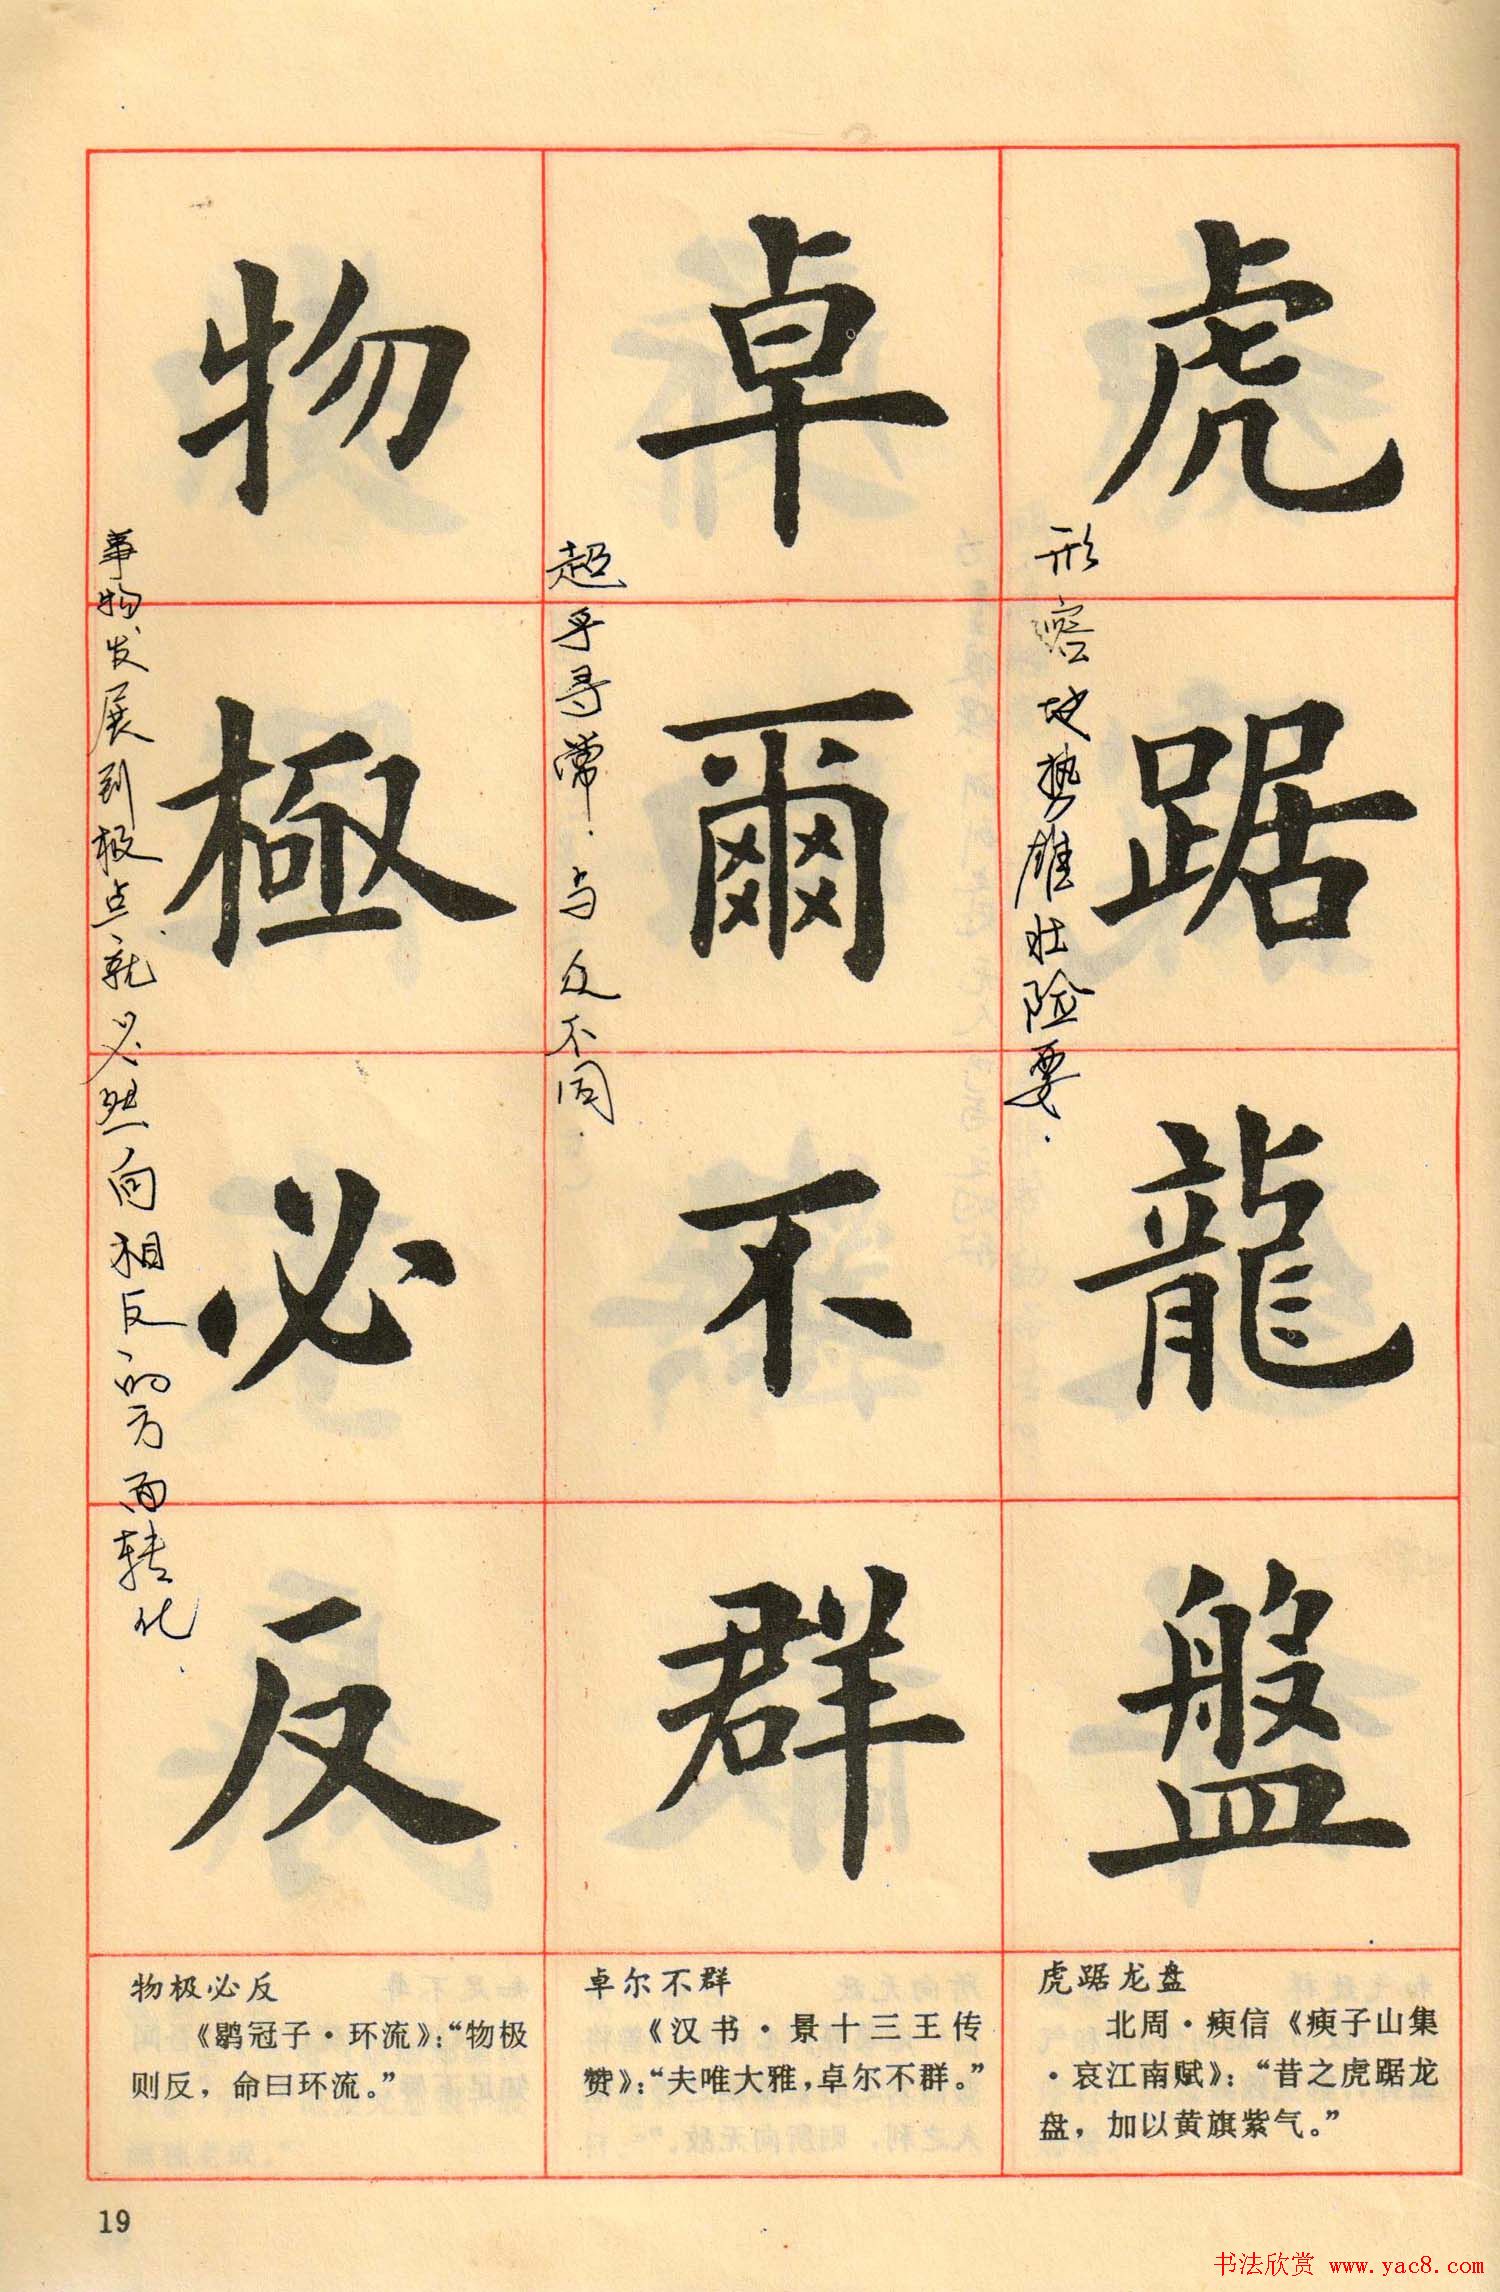 虎踞龍盤
形容地势雄壮险要.
卓爾不群
超乎寻常.与众不同.
物極必反
事物发展到极点就必然向相反的方面转化.
虎踞龙盘
北周·瘐信《瘐子山集
·哀江南赋》：“昔之虎踞龙
盘，加以黄旗紫气。”
卓尔不群
《汉书·景十三王传
赞》：“夫唯大雅，卓尔不群。”
物极必反
《鹖冠子·环流》：“物极
则反，命曰环流。”
19
书法欣赏 www.yac8.com